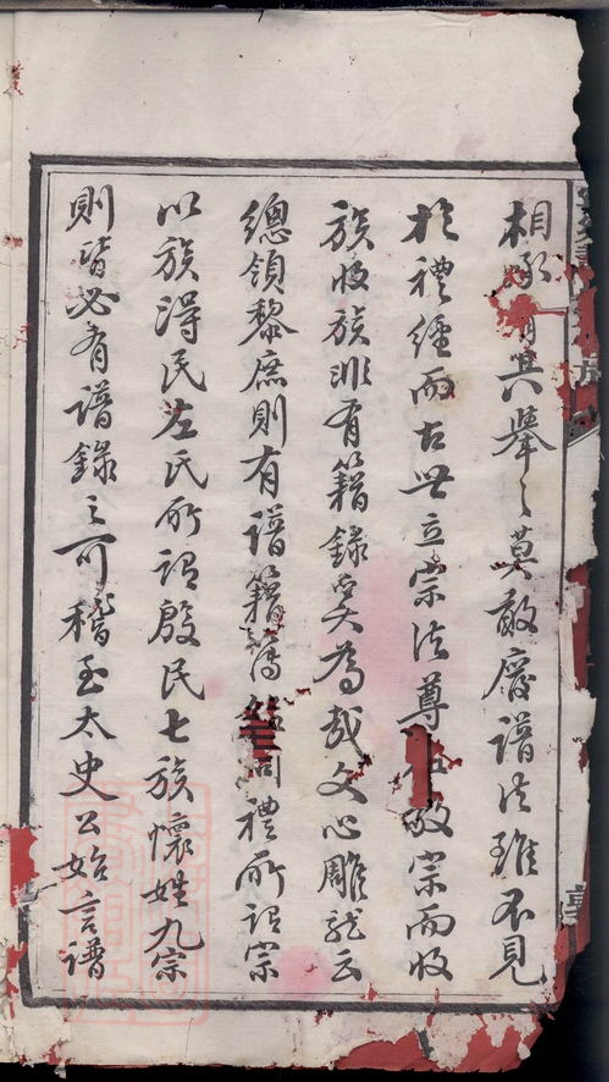 相承有其舉之莫敢廢譜法雖不見
於禮經而古世立宗法尊祖敬宗而收
族收族非有籍錄奚為哉文心雕龍云
總領黎庶則有譜籍簿錄周禮所謂宗
以族得民左氏所謂殷民七族懷姓九宗
則皆必有譜錄之可稽至太史公始言譜